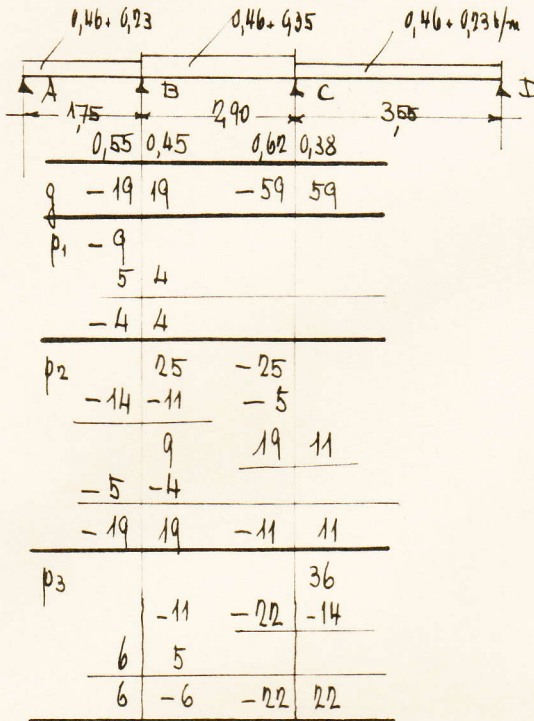 0,46 + 0,23 0,46 + 0,35 0,46 + 0,23 t/m
A B C D
1,75 2,90 3,55
0,55 0,45 0,62 0,38
g -19 19 -59 59
p1 -9
5 4
-4 4
p2 25 -25
-14 -11 -5
9 19 11
-5 -4
-19 19 -11 11
p3 36
-11 -22 -14
6 5
6 -6 -22 22